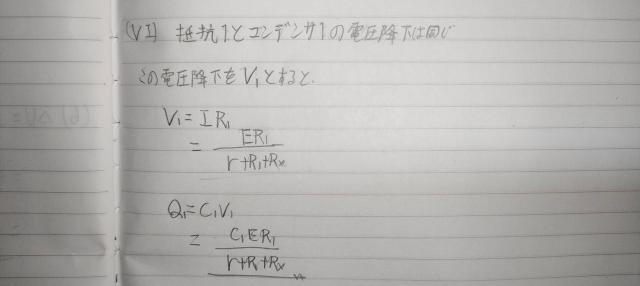 (VI) 抵抗1とコンデンサ1の電圧降下は同じ
この電圧降下をV₁とすると.
V₁ = IR₁
= ER₁/(r+R₁+Rx)
Q₁ = C₁V₁
= C₁ER₁/(r+R₁+Rx)